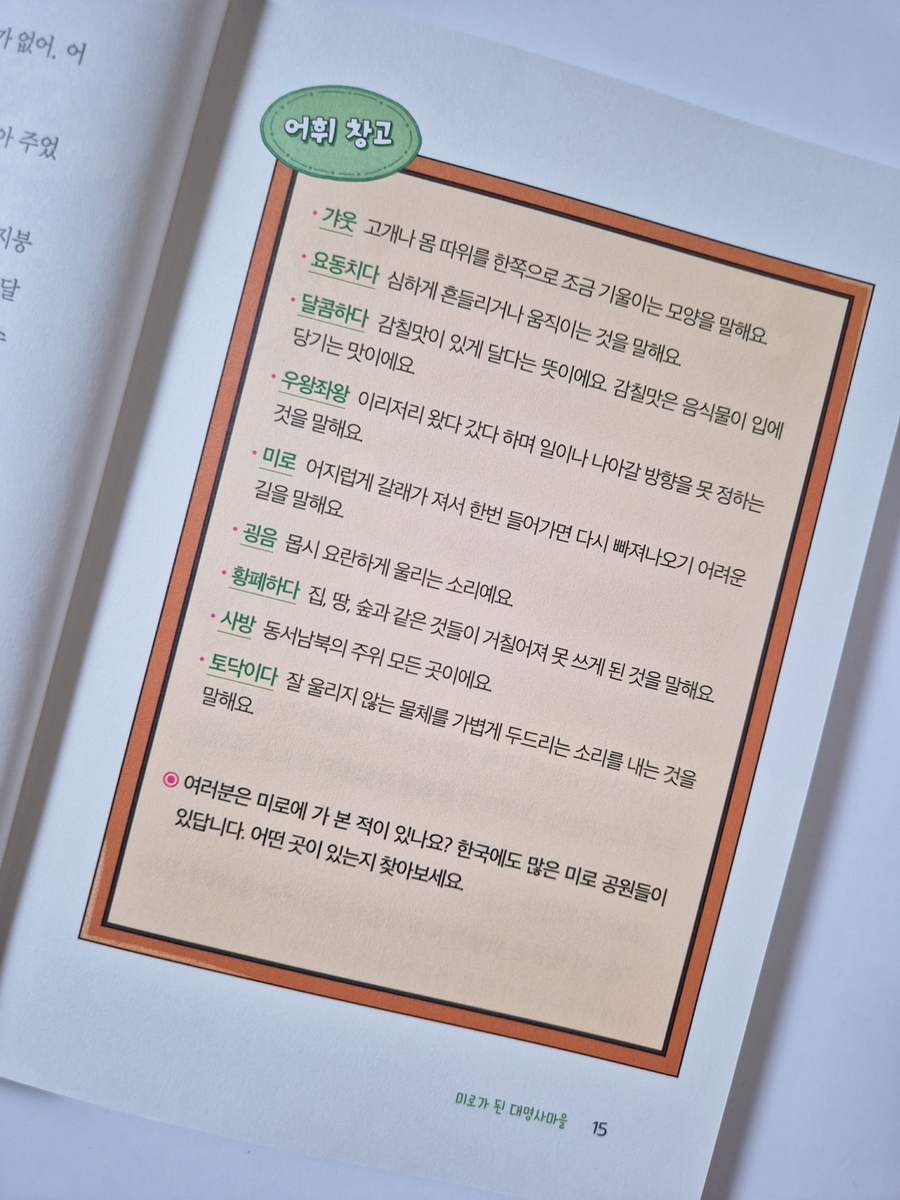 가 없어. 어
아 주었
지붕
달
어휘 창고
갸웃 고개나 몸 따위를 한쪽으로 조금 기울이는 모양을 말해요.
요동치다 심하게 흔들리거나 움직이는 것을 말해요.
달콤하다 감칠맛이 있게 달다는 뜻이에요. 감칠맛은 음식물이 입에
당기는 맛이에요.
우왕좌왕 이리저리 왔다 갔다 하며 일이나 나아갈 방향을 못 정하는
것을 말해요.
미로 어지럽게 갈래가 져서 한번 들어가면 다시 빠져나오기 어려운
길을 말해요.
굉음 몹시 요란하게 울리는 소리예요.
황폐하다 집, 땅, 숲과 같은 것들이 거칠어져 못 쓰게 된 것을 말해요.
사방 동서남북의 주위 모든 곳이에요.
토닥이다 잘 울리지 않는 물체를 가볍게 두드리는 소리를 내는 것을
말해요.
여러분은 미로에 가 본 적이 있나요? 한국에도 많은 미로 공원들이
있답니다. 어떤 곳이 있는지 찾아보세요.
미로가 된 대명사마을 15